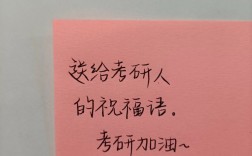 送给考研人
的祝福语.
考研加油~